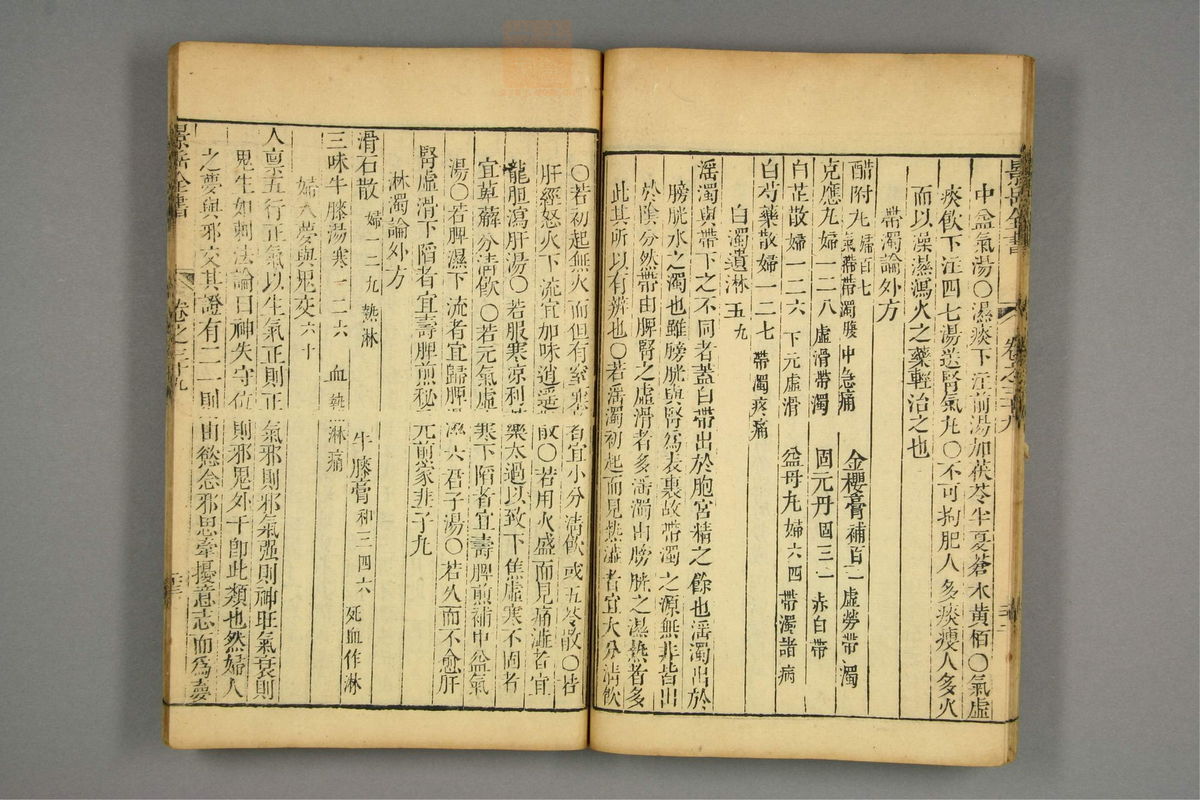 中益氣湯〇濕痰下注前湯加茯苓半夏蒼术黃栢〇氣虛
痰飲下注四七湯送腎氣丸〇不可拘肥人多痰瘦人多火
而以燥濕瀉火之藥輕治之也
帶濁論外方
醋附丸 婦百七 氣滯帶濁腹中急痛 金櫻膏 補百一 虛勞帶濁
克應丸 婦一二八 虛滑帶濁 固元丹 固三一 赤白帶
白芷散 婦一二六 下元虛滑 益母丸 婦六四 帶濁諸病
白芍藥散 婦一二七 帶濁疼痛
白濁遺淋 五九
淫濁與帶下之不同者蓋白帶出於胞宮精之餘也淫濁出於
膀胱水之濁也雖膀胱與腎為表裏故帶濁之源無非皆出
於陰分然帶由脾腎之虛滑者多淫濁出膀胱之濕熱者多
此其所以有辨也〇若淫濁初起而見熱澁者宜大分清飲
〇若初起無火而但有窒塞者宜小分清飲或五苓散〇若
肝經怒火下流宜加味逍遥散〇若用火盛而見痛澁者宜
龍胆瀉肝湯〇若服寒凉利藥太過以致下焦虛寒不固者
宜萆薢分清飲〇若元氣虛寒下陷者宜壽脾煎補中益氣
湯〇若脾濕下流者宜歸脾湯六君子湯〇若久而不愈肝
腎虛滑下陷者宜壽脾煎秘元煎家韭子丸
淋濁論外方
滑石散 婦一二九 熱淋 牛膝膏 和三四六 死血作淋
三味牛膝湯 寒一二六 血熱淋痛
婦人夢與鬼交 六十
人稟五行正氣以生氣正則正氣邪則邪氣强則神旺氣衰則
鬼生如刺法論曰神失守位則邪鬼外干卽此類也然婦人
之夢與邪交其證有二一則由慾念邪思牽擾意志而為夢
景岳全書
卷之三十九